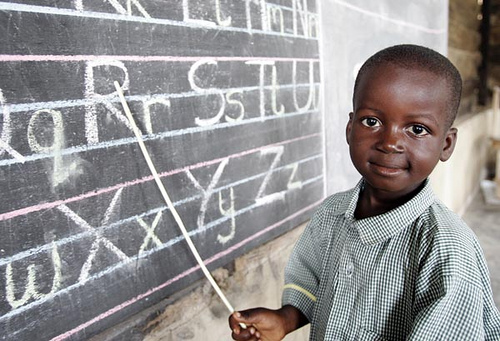 Kk Ll Mm Nn
q Rr Ss Tt U
w Xx Yy Zz